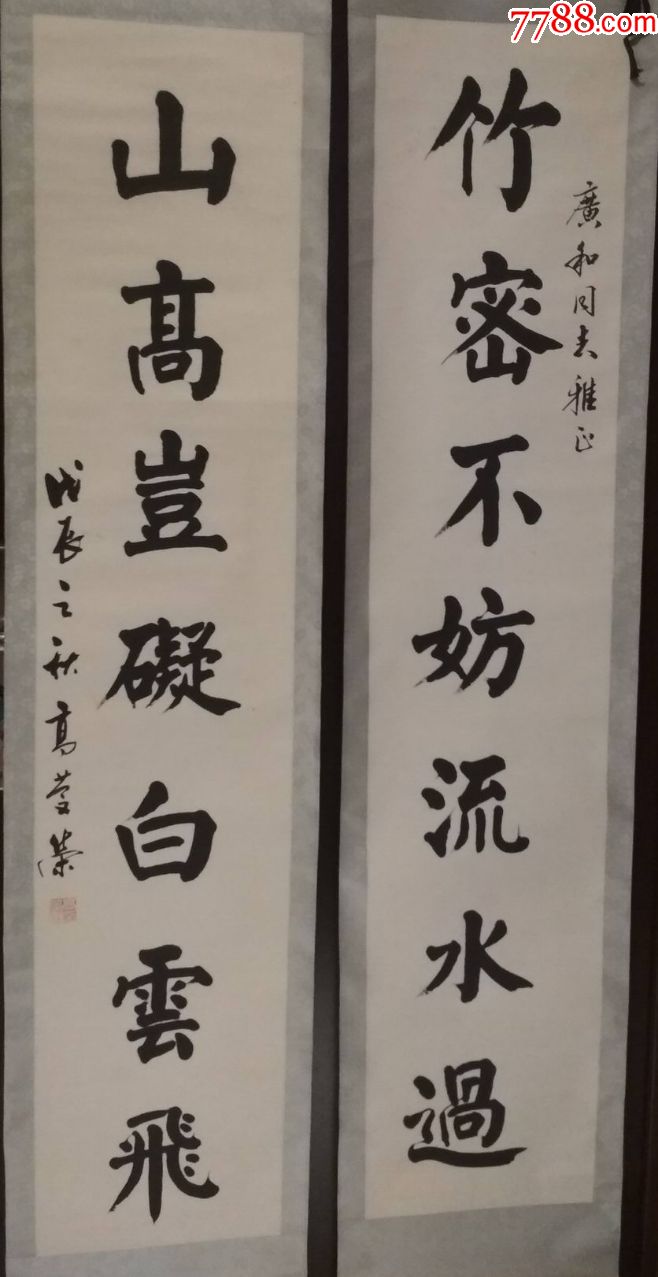 7788.com
竹密不妨流水過
廣和同志雅正
山高豈礙白雲飛
戊辰之秋高